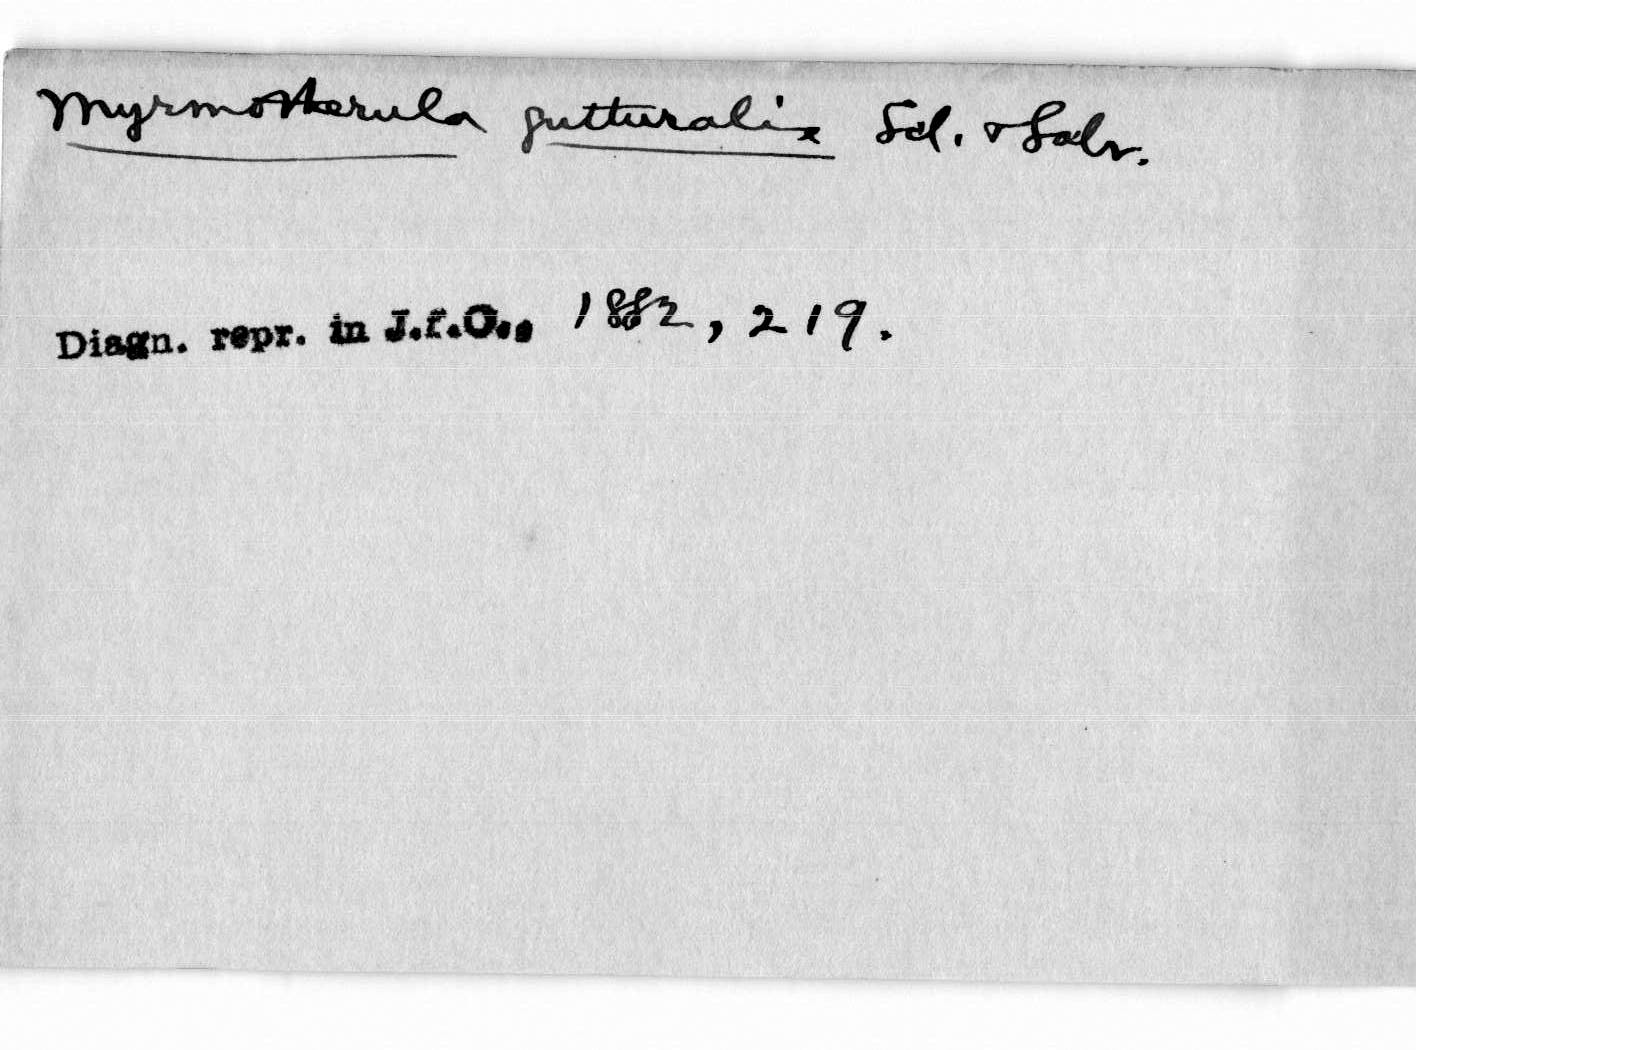 Myrmotherula gutturalis Scl. & Salv.
Diagn. repr. in J.f.O., 1882, 219.